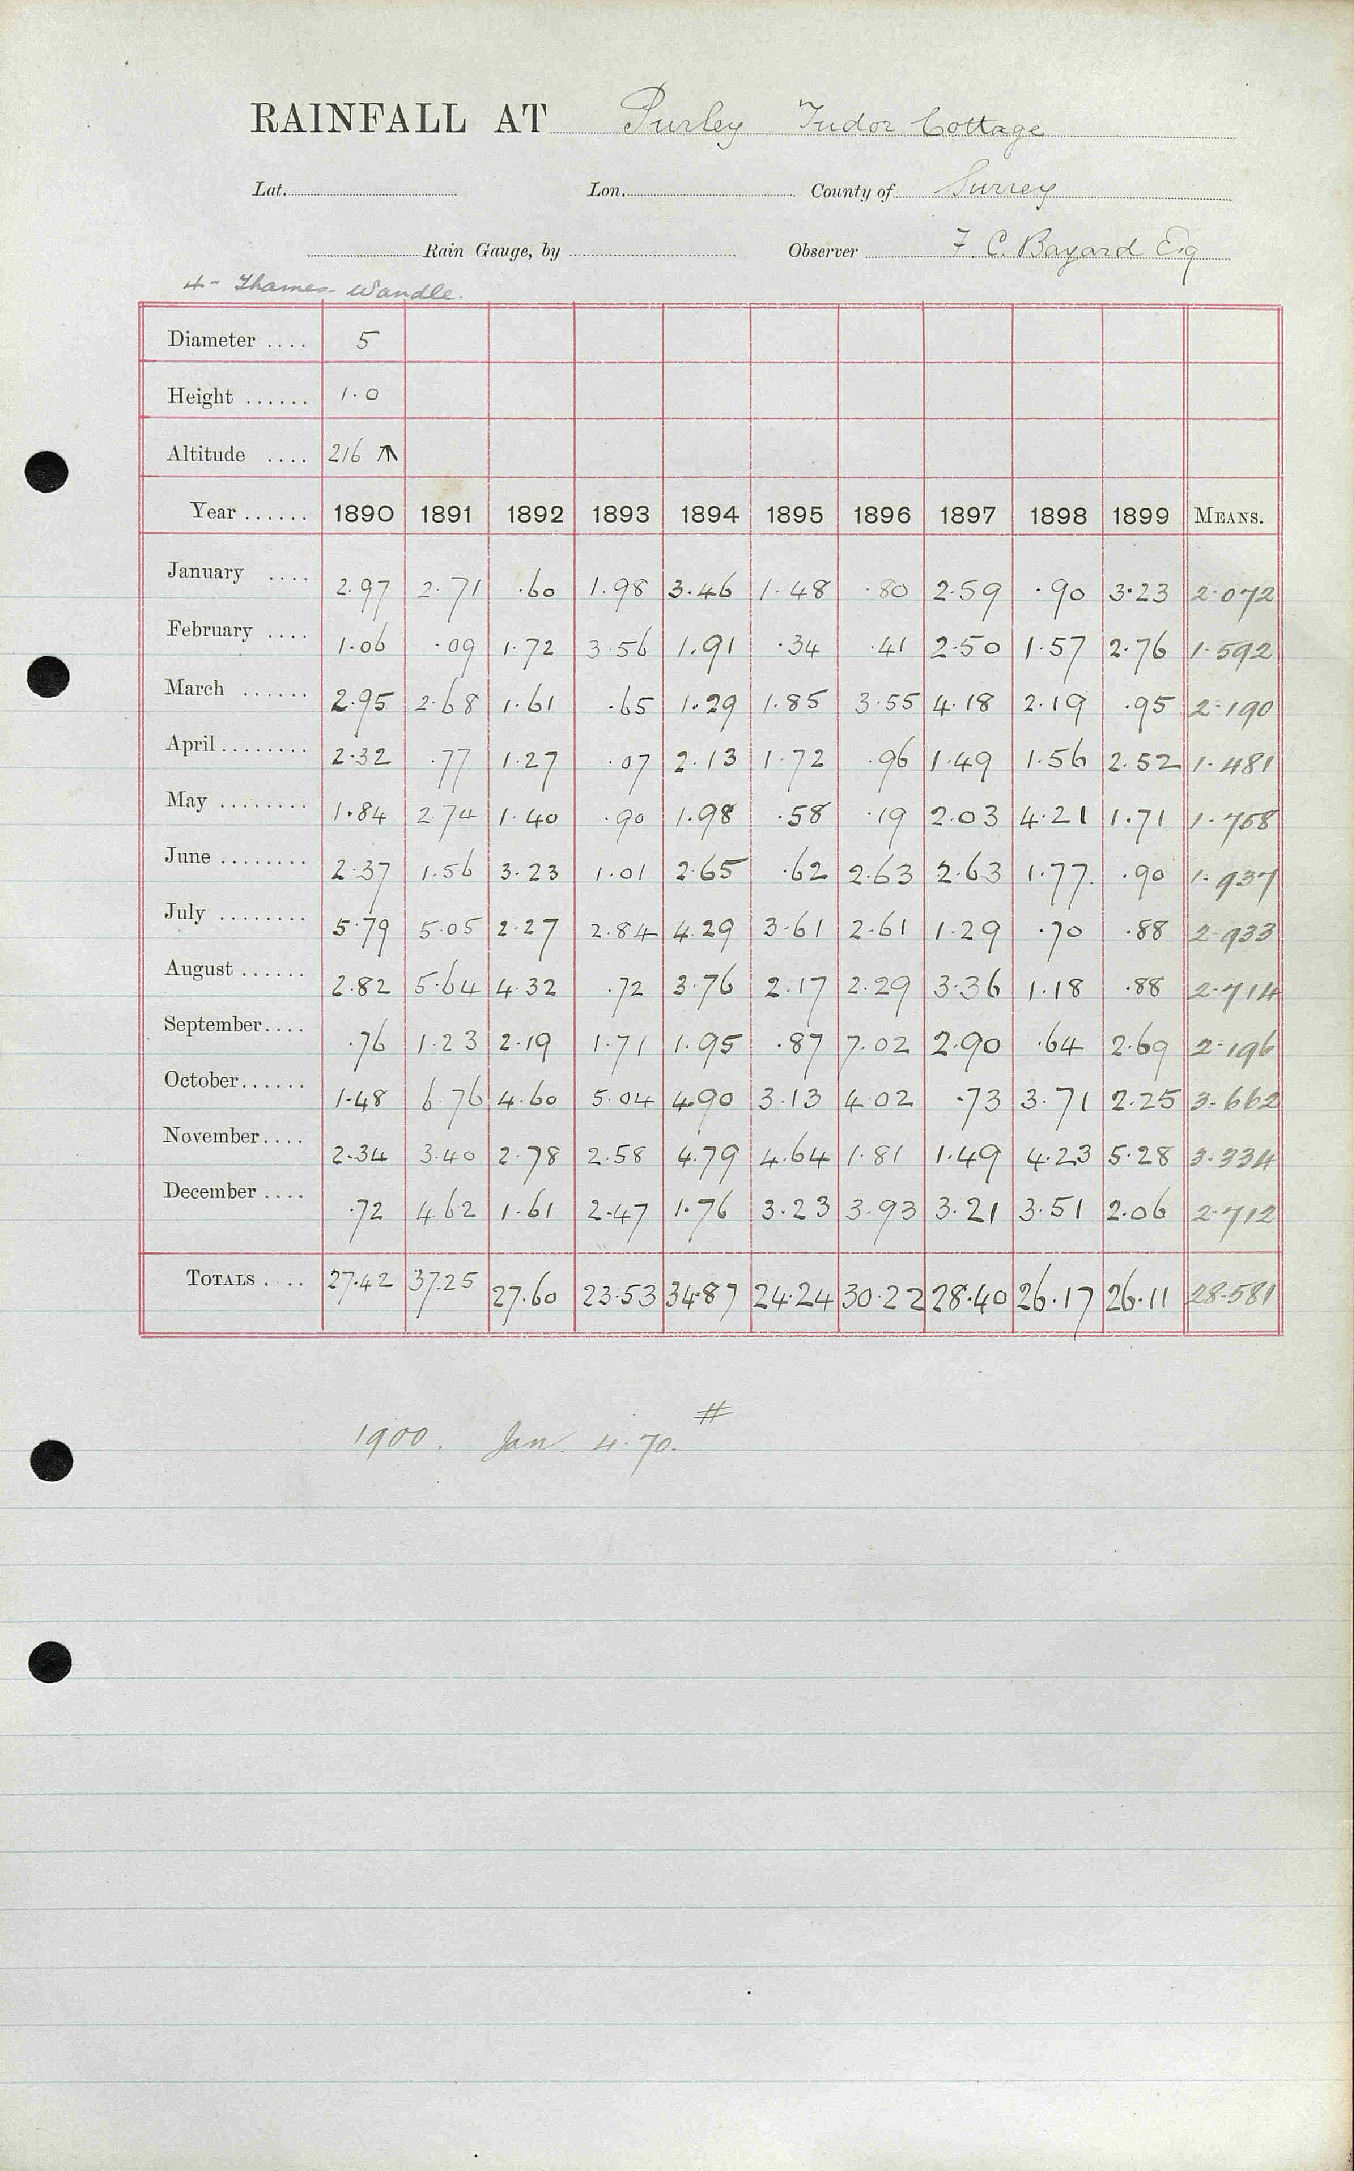 RAINFALL AT Purley Tudor Cottage
Lat. Lon. County of Surrey
Rain Gauge, by Observer F. C. Bayard Esq
4 - Thames - Wandle.
Diameter .... 5
Height ...... 1.0
Altitude .... 216 ↑
Year ...... 1890 1891 1892 1893 1894 1895 1896 1897 1898 1899 MEANS.
January .... 2.97 2.71 .60 1.98 3.46 1.48 .80 2.59 .90 3.23 2.072
February .... 1.06 .09 1.72 3.56 1.91 .34 .41 2.50 1.57 2.76 1.592
March ...... 2.95 2.68 1.61 .65 1.29 1.85 3.55 4.18 2.19 .95 2.190
April ........ 2.32 .77 1.27 .07 2.13 1.72 .96 1.49 1.56 2.52 1.481
May ........ 1.84 2.74 1.40 .90 1.98 .58 .19 2.03 4.21 1.71 1.758
June ........ 2.37 1.56 3.23 1.01 2.65 .62 2.63 2.63 1.77 .90 1.937
July ........ 5.79 5.05 2.27 2.84 4.29 3.61 2.61 1.29 .70 .88 2.933
August ...... 2.82 5.64 4.32 .72 3.76 2.17 2.29 3.36 1.18 .88 2.714
September.... .76 1.23 2.19 1.71 1.95 .87 7.02 2.90 .64 2.69 2.196
October...... 1.48 6.76 4.60 5.04 4.90 3.13 4.02 .73 3.71 2.25 3.662
November.... 2.34 3.40 2.78 2.58 4.79 4.64 1.81 1.49 4.23 5.28 3.334
December .... .72 4.62 1.61 2.47 1.76 3.23 3.93 3.21 3.51 2.06 2.712
TOTALS .... 27.42 37.25 27.60 23.53 34.87 24.24 30.22 28.40 26.17 26.11 28.581
1900. Jan. 4.70. #